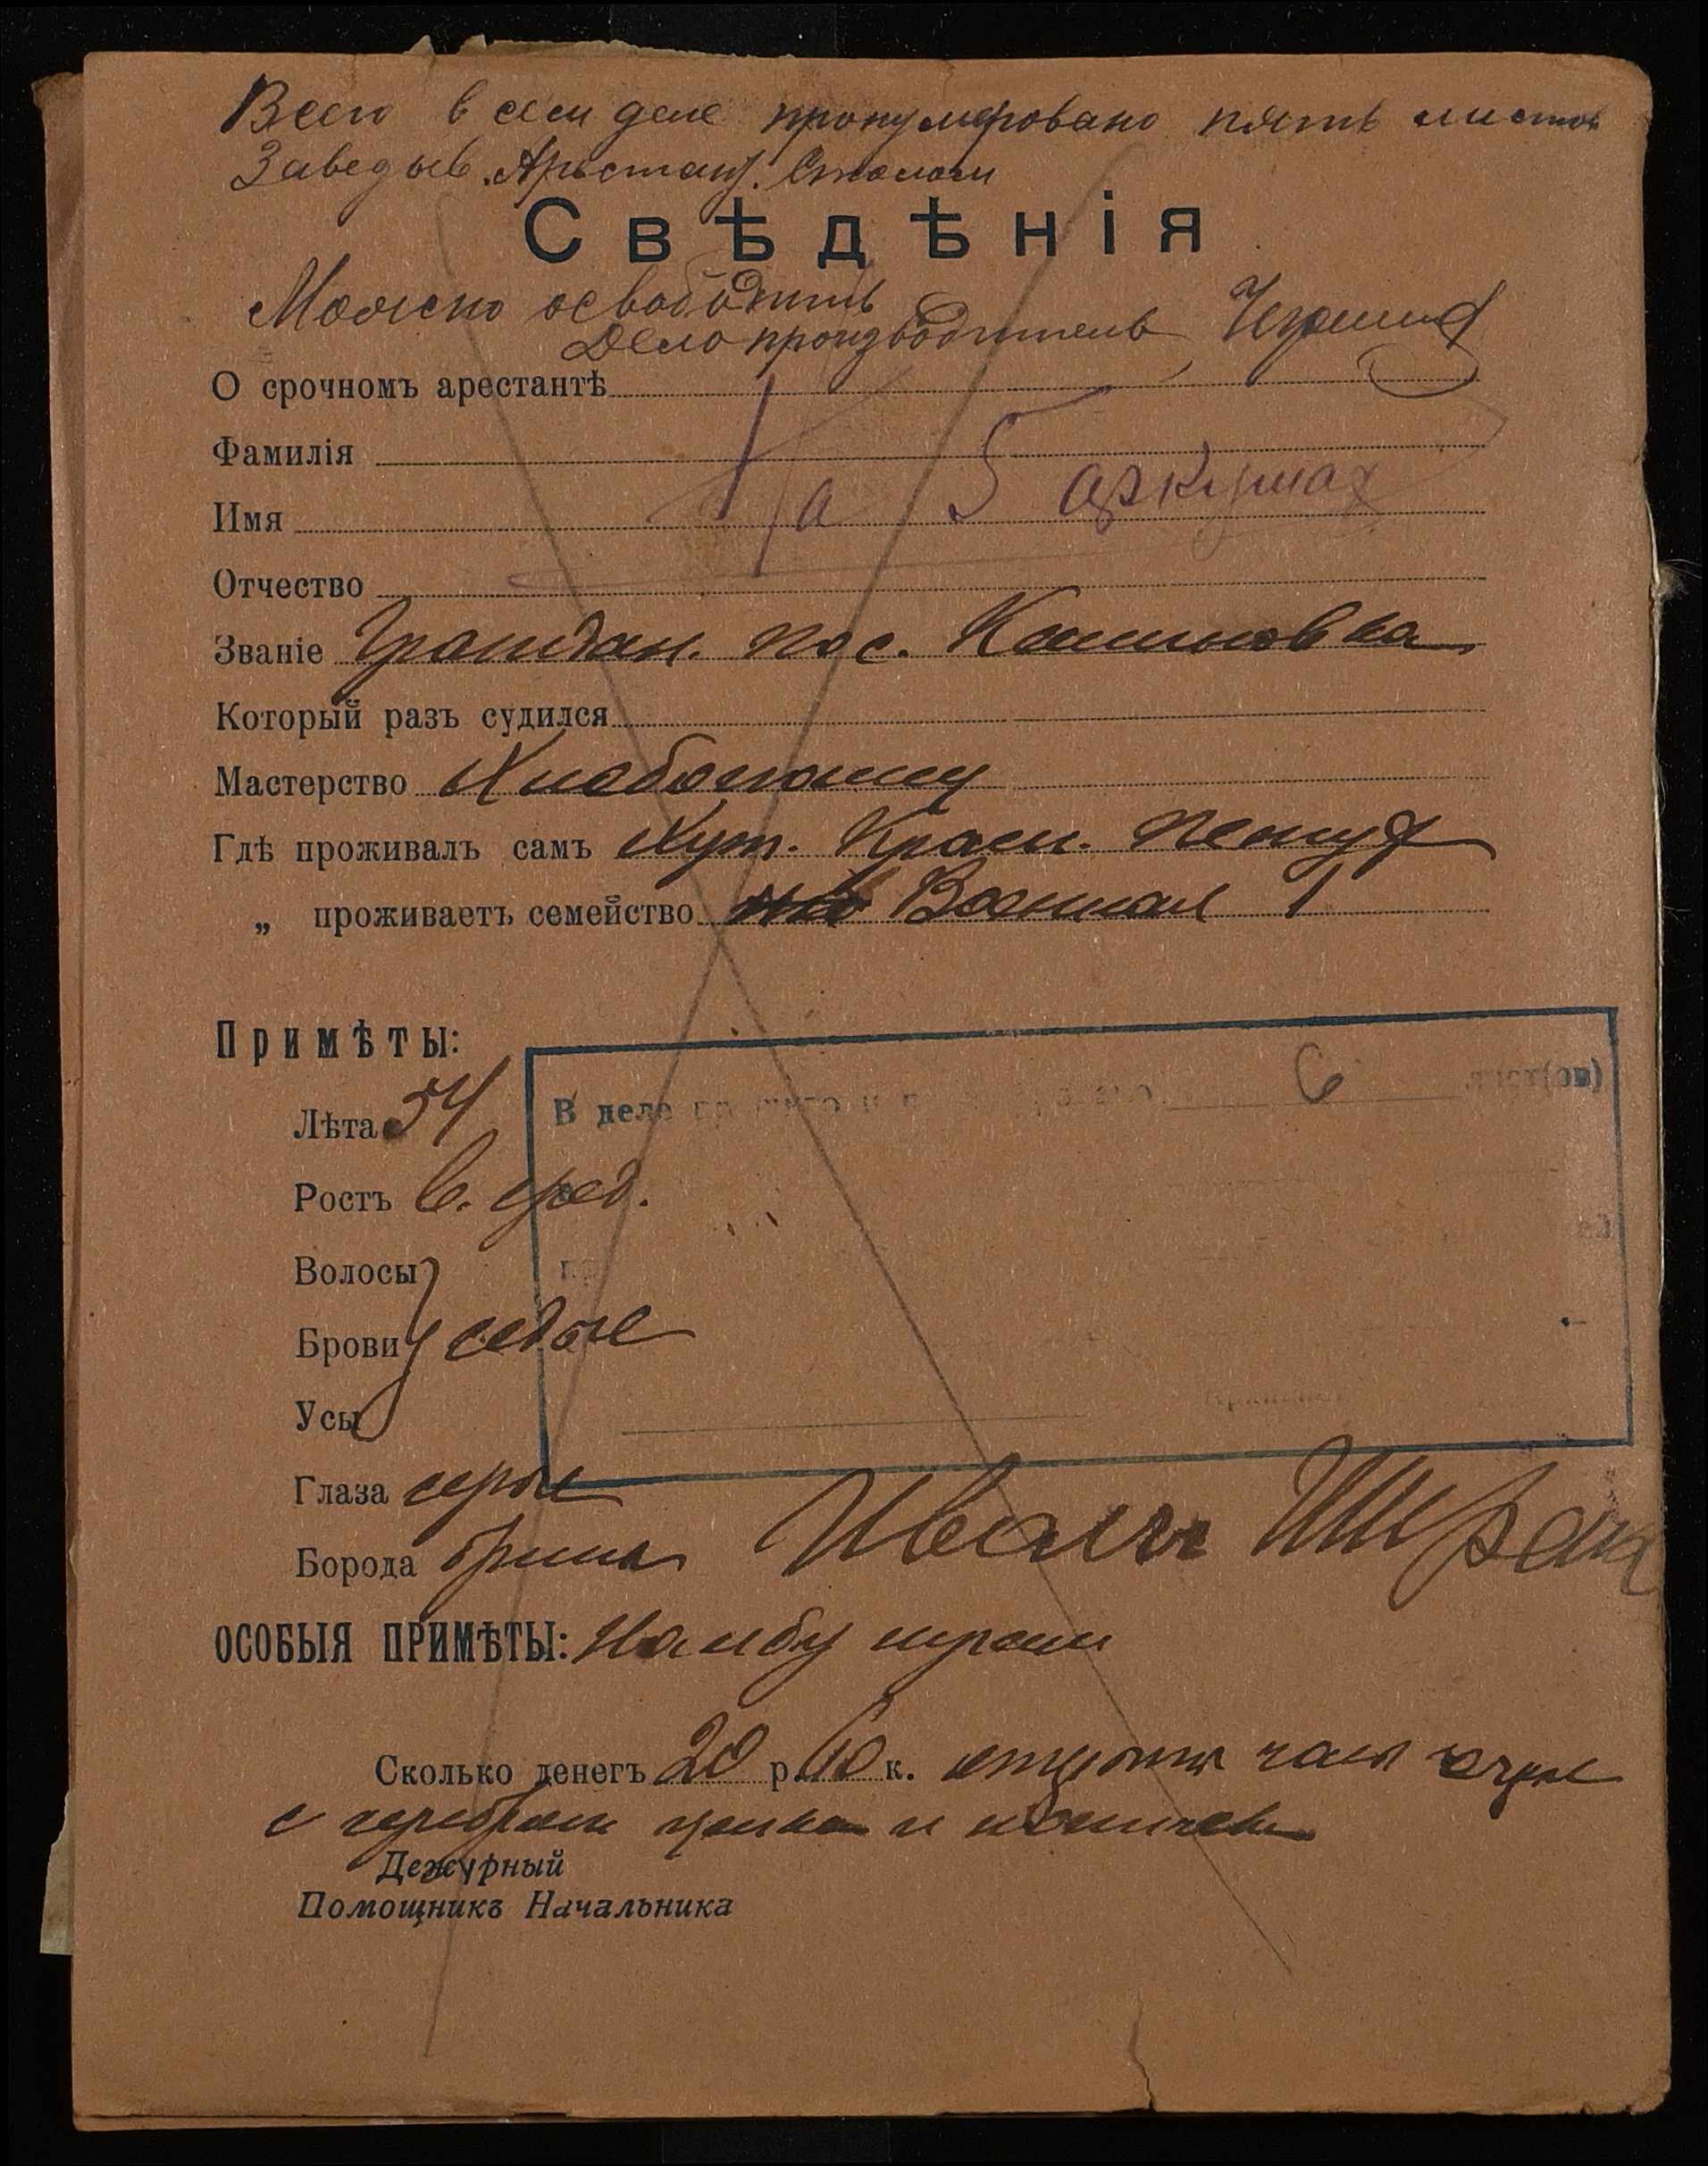 Всего в сем деле пронумеровано пять листов
Заведыв. Арестант. Столом
Свѣдѣнія
Можно освободить
Делопроизводитель
О срочномъ арестантѣ
Фамилія
На 5 аркушах
Имя
Отчество
Званіе Граждан. пос.
Который разъ судился
Мастерство Хлебопашец
Гдѣ проживалъ самъ Хут. Красн.
„ проживаетъ семейство Военная 1
Примѣты:
Лѣта 54
В деле 6 лист(ов)
Ростъ в. сред.
Волосы
Брови седые
Усы
Глаза серые
Борода бритая Иванъ
ОСОБЫЯ ПРИМѢТЫ: На лбу шрам
Сколько денегъ 20 р. 60 к. часы
с и
Дежурный
Помощникъ Начальника